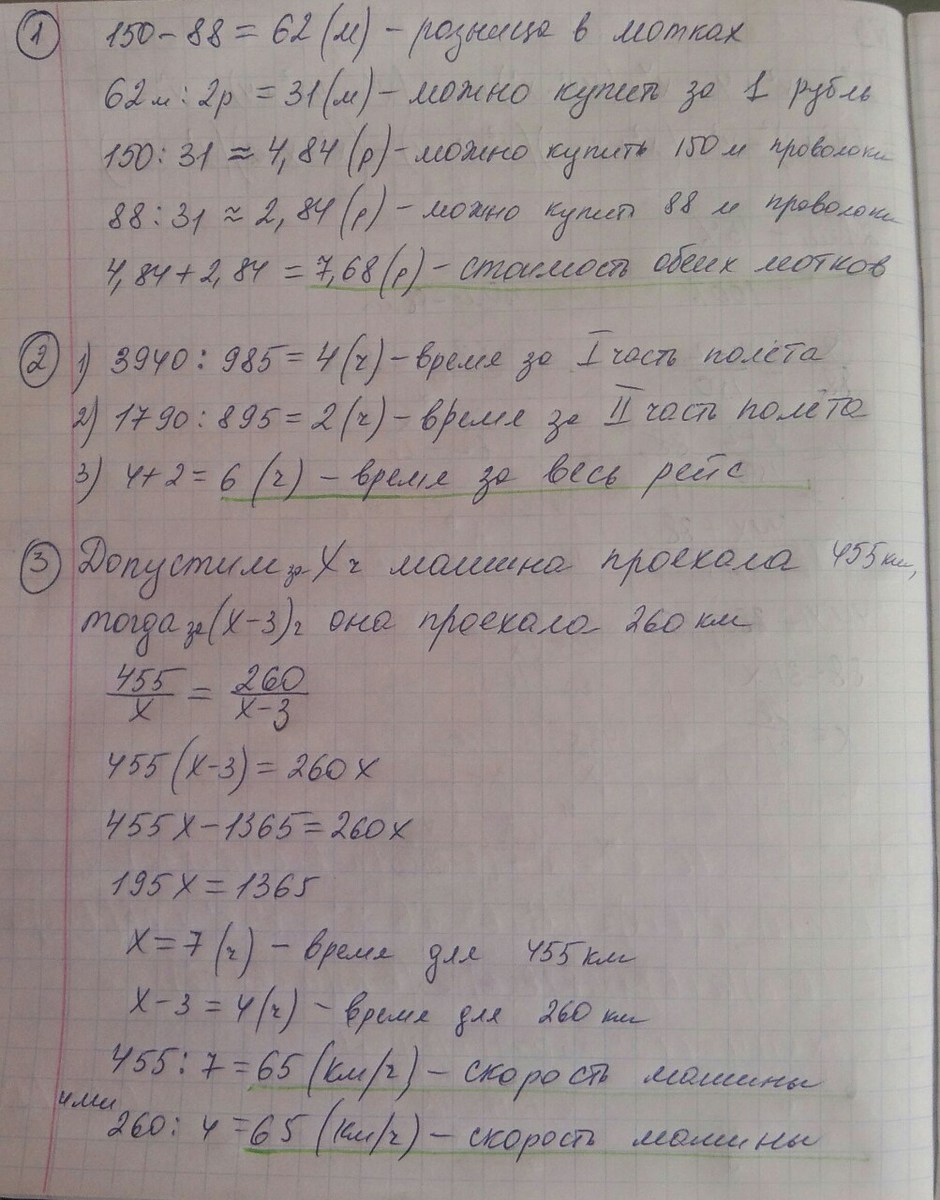 1 150 - 88 = 62 (м) - разница в мотках
62м : 2р = 31 (м) - можно купить за 1 рубль
150 : 31 ≈ 4,84 (р) - можно купить 150 м проволоки
88 : 31 ≈ 2,84 (р) - можно купить 88 м проволоки
4,84 + 2,84 = 7,68 (р) - стоимость обеих мотков
2 1) 3940 : 985 = 4 (ч) - время за I часть полёта
2) 1790 : 895 = 2 (ч) - время за II часть полёта
3) 4 + 2 = 6 (ч) - время за весь рейс
3 Допустим за X ч машина проехала 455 км,
тогда за (X-3) ч она проехала 260 км
455/X = 260/X-3
455 (X-3) = 260 X
455 X - 1365 = 260 X
195 X = 1365
X = 7 (ч) - время для 455 км
X - 3 = 4 (ч) - время для 260 км
455 : 7 = 65 (км/ч) - скорость машины
или
260 : 4 = 65 (км/ч) - скорость машины